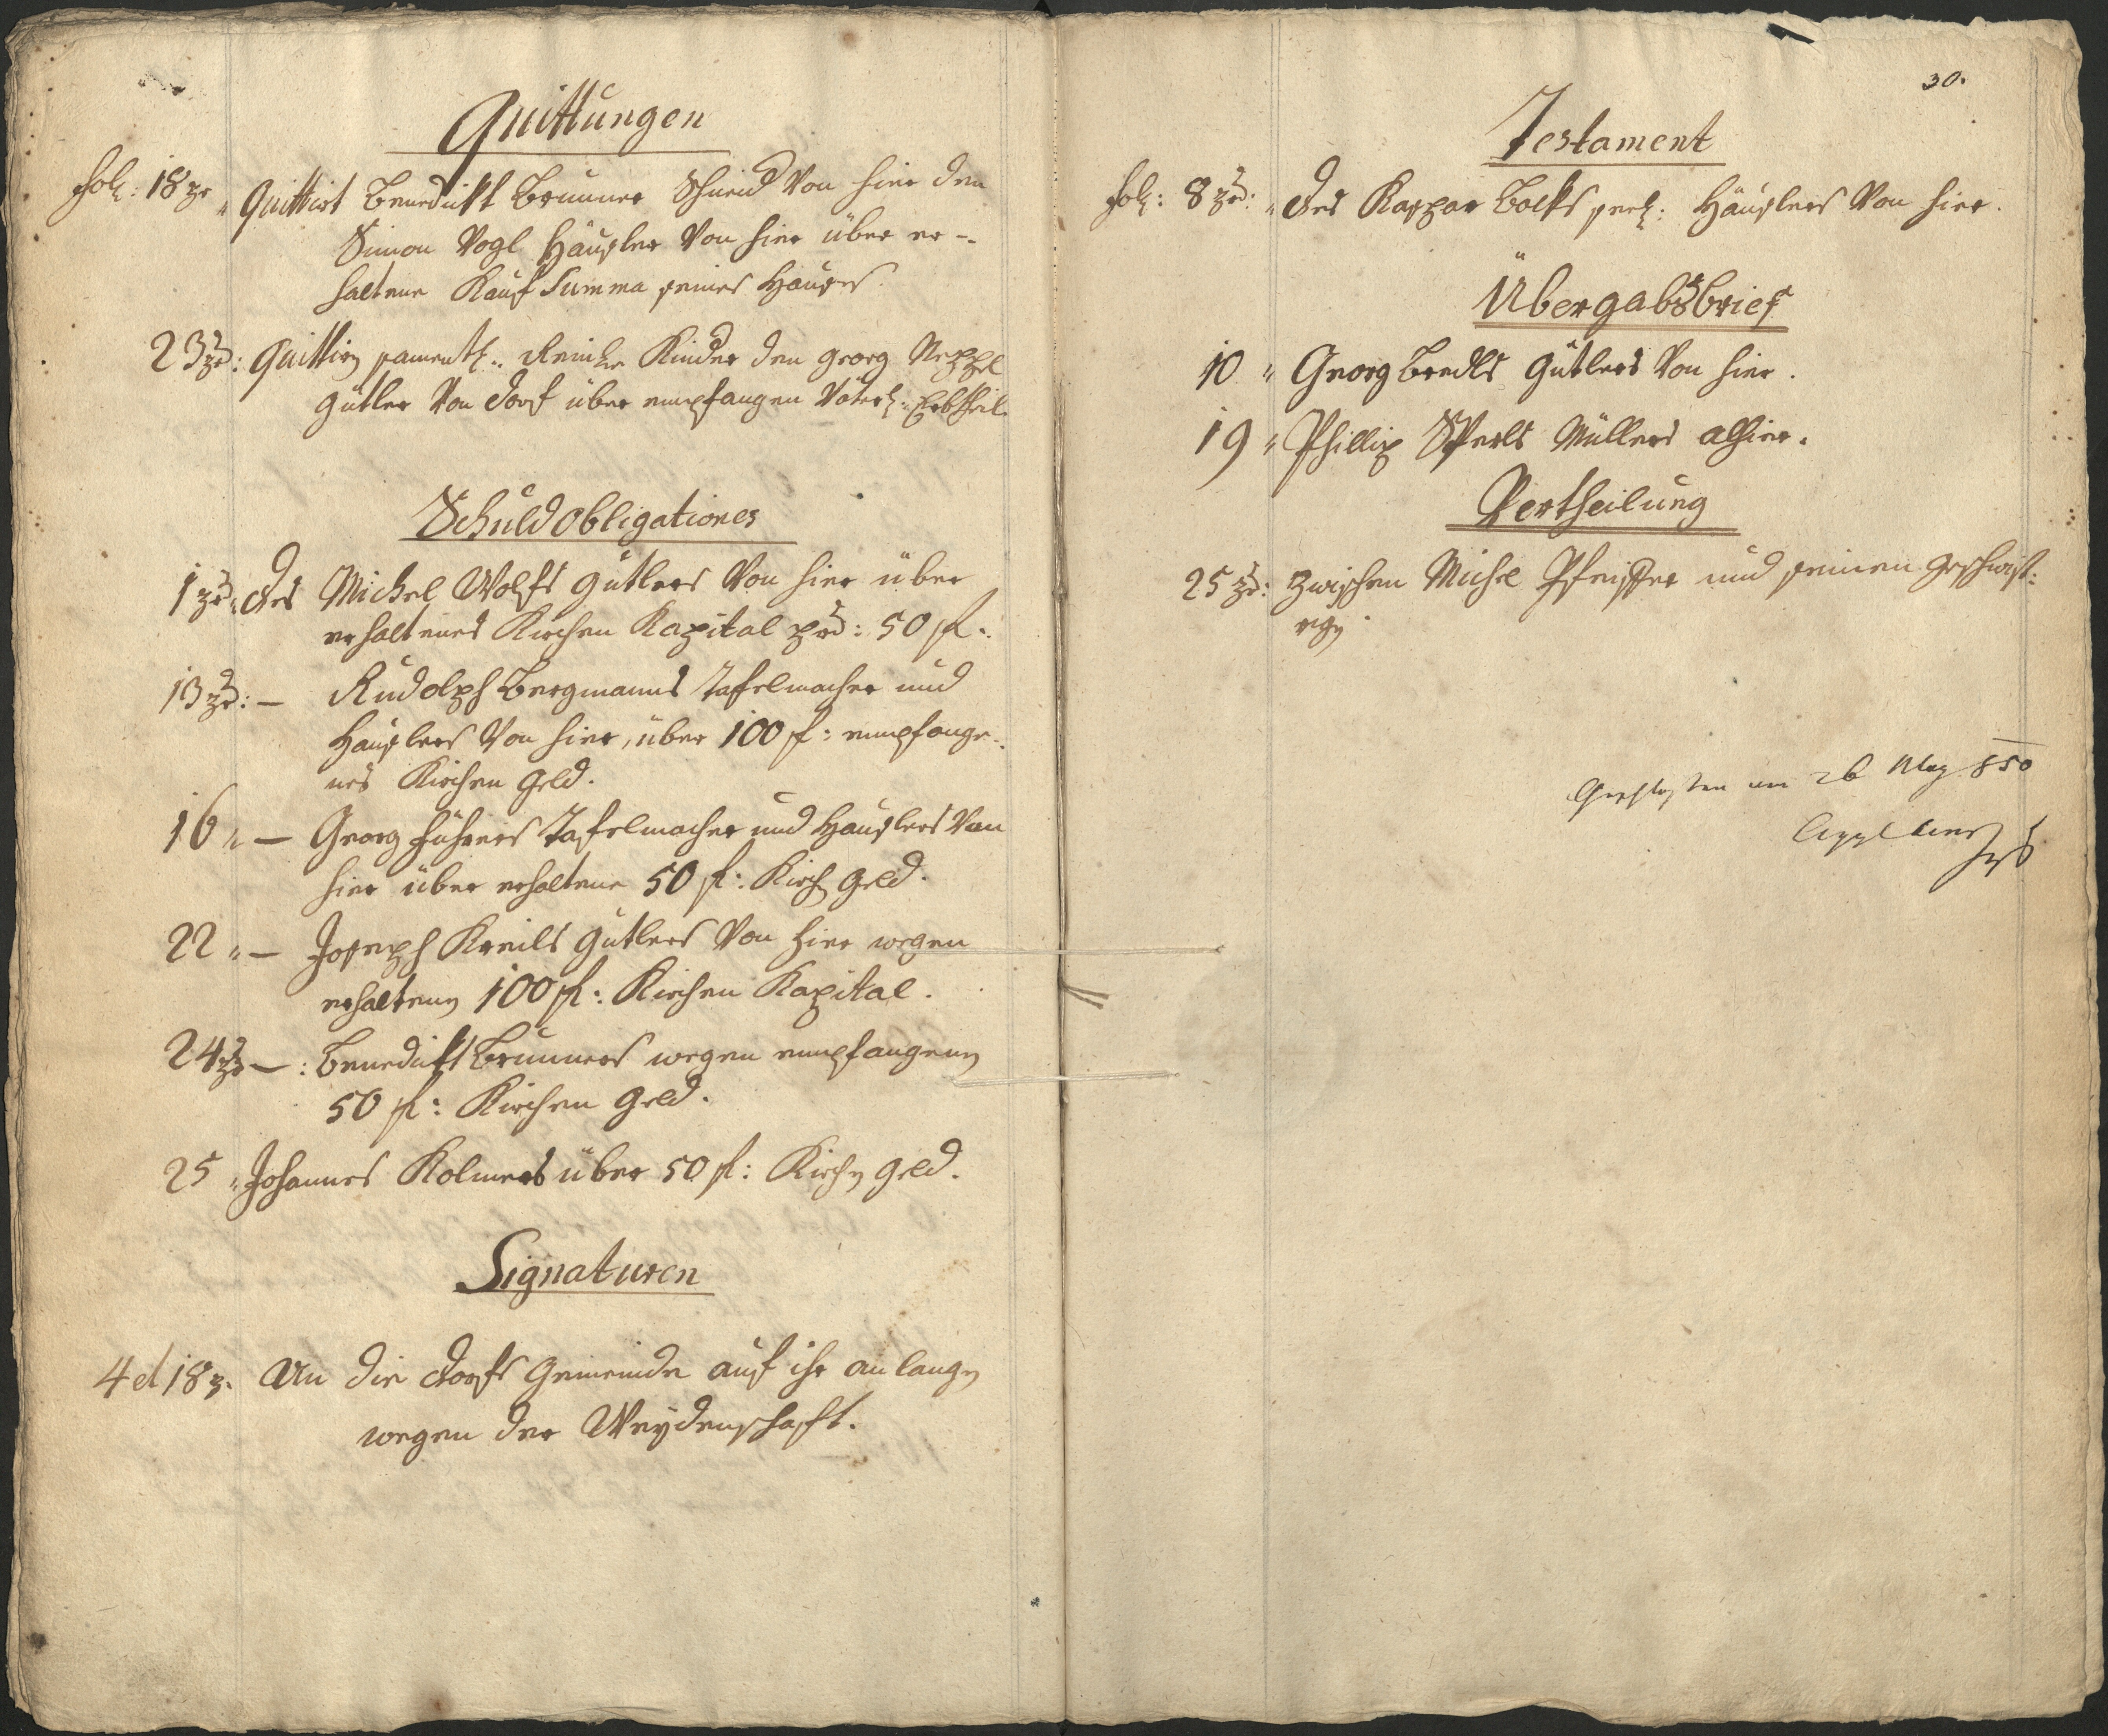 Quittungen
fol: 18 "Quittirt Benedickt Brunner Schneid von hier den
Simon Vogl Häußler von hier über er-
haltene Kauf Summa seines Haußes.
23 : Quittirn samentl: Kinder den Georg
Gütler von Dorf über empfangen Väterl: Erbtheil.
Schuld obligationes
1 des Michel Wolfs Gütlers von hier über
erhaltenes Kirchen Kapital pr: 50 fl.
13 : — Rudolph Bergmanns Tafelmacher und
Häußlers von hier, über 100 fl: empfange-
nes Kirchen Geld.
16 " — Georg Führers Tafelmacher und Häußlers von
hier über erhaltene 50 fl: Kirch Geld.
22 " — Joseph Kreils Gütlers von hier wegen
erhalten 100 fl: Kirchen Kapital.
24 — : Benedickt Brunners wegen empfangen
50 fl: Kirchen Geld.
25 " Johannes Kolmers über 50 fl: Kirchen Geld.
Signaturen
4 et 18 An die Dorfs Gemeinde auf ihr anlangen
wegen der Weydenschaft.
30.
Testament
fol: 8 : " des Kaspar Bocks seel: Häußlers von hier.
Übergabsbrief
10 " Georg Bredls Gütlers von hier.
19 " Phillip Sperls Müllers alhier.
Vertheilung
25 : Zwischen Michel Pfeiffer und seinen Geschwist:
rgn
Geschlossen am 26 May 850